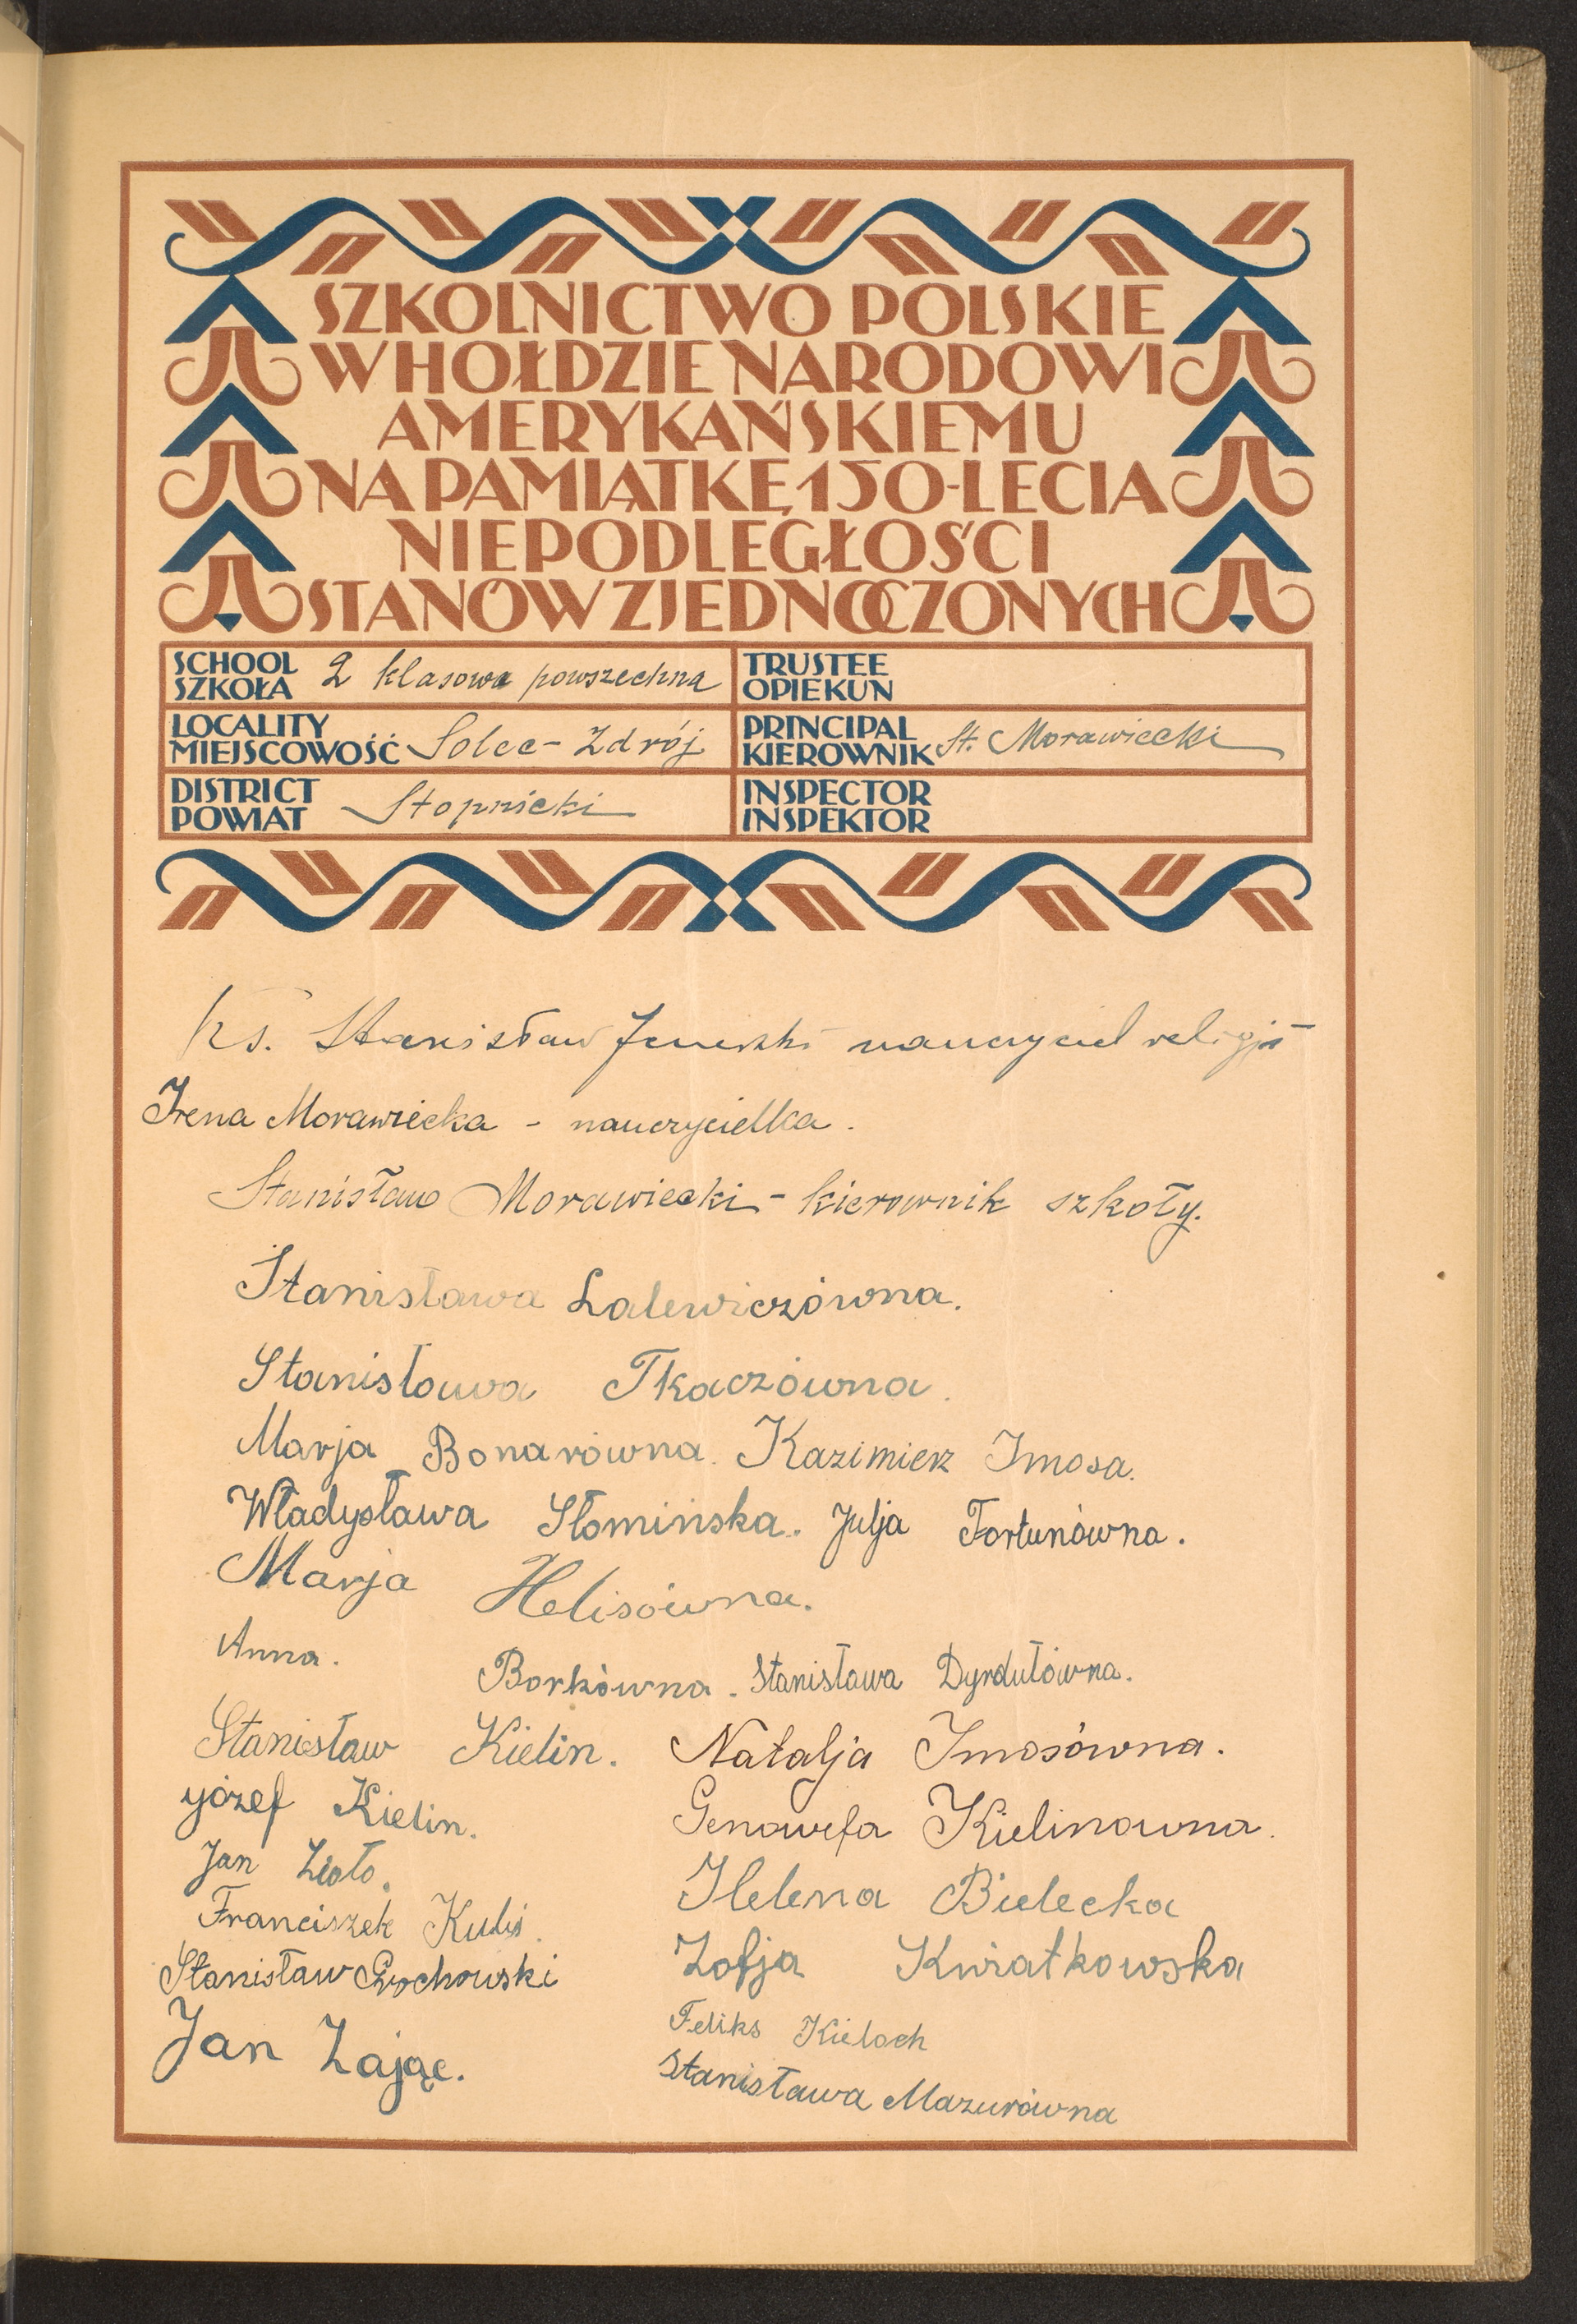 SZKOLNICTWO POLSKIE
W HOŁDZIE NARODOWI
AMERYKAŃSKIEMU
NA PAMIĄTKĘ 150-LECIA
NIEPODLEGŁOŚCI
STANÓW ZJEDNOCZONYCH
SCHOOL
SZKOŁA 2 klasowa powszechna
TRUSTEE
OPIEKUN
LOCALITY
MIEJSCOWOŚĆ Solec-Zdrój
PRINCIPAL
KIEROWNIK St. Morawiecki
DISTRICT
POWIAT Stopnicki
INSPECTOR
INSPEKTOR
Ks. Stanisław nauczyciel religji
Irena Morawiecka - nauczycielka.
Stanisław Morawiecki - kierownik szkoły.
Stanisława Lalewiczówna.
Stanisława Tkaczówna.
Marja Bonarówna. Kazimierz Imosa.
Władysława Słomińska. Julja Fortunówna.
Marja Helisówna.
Anna. Borkówna. Stanisława Dyrdułówna.
Stanisław Kielin. Natalja Imosówna.
Józef Kielin. Genowefa Kielinowna.
Jan Zioło. Helena Bielecka
Franciszek Kuliś. Zofja Kwiatkowska
Stanisław Grochowski
Feliks Kieloch
Jan Zając.
Stanisława Mazurówna